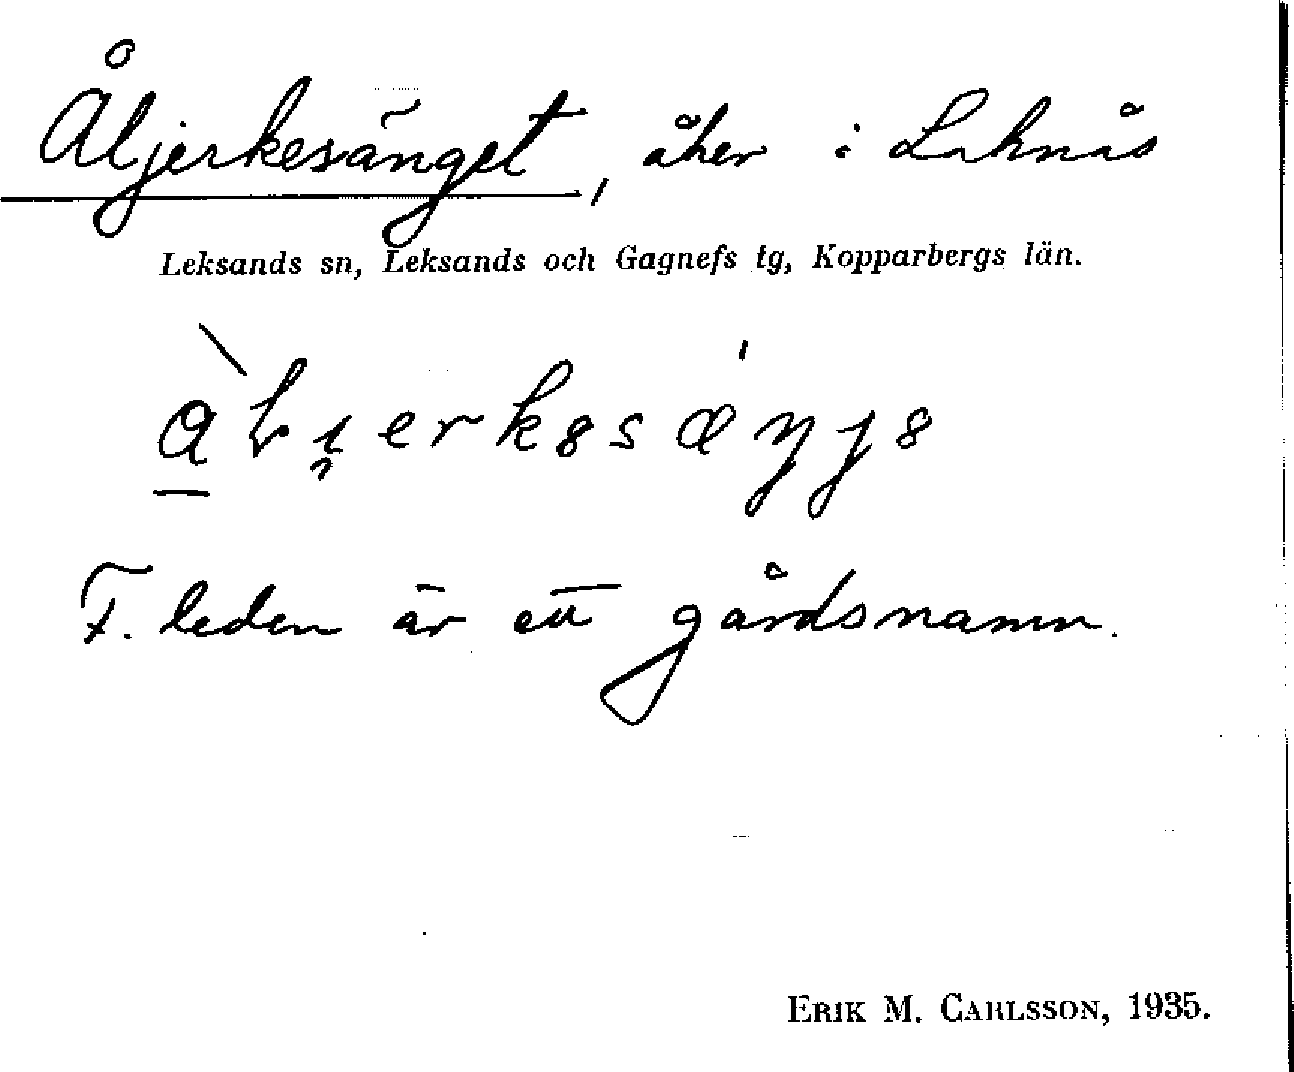 Åljerkesänget, åker i Laknäs
Leksands sn, Leksands och Gagnefs tg, Kopparbergs län.
F. leden är ett gårdsnamn.
ERIK M. CARLSSON, 1935.